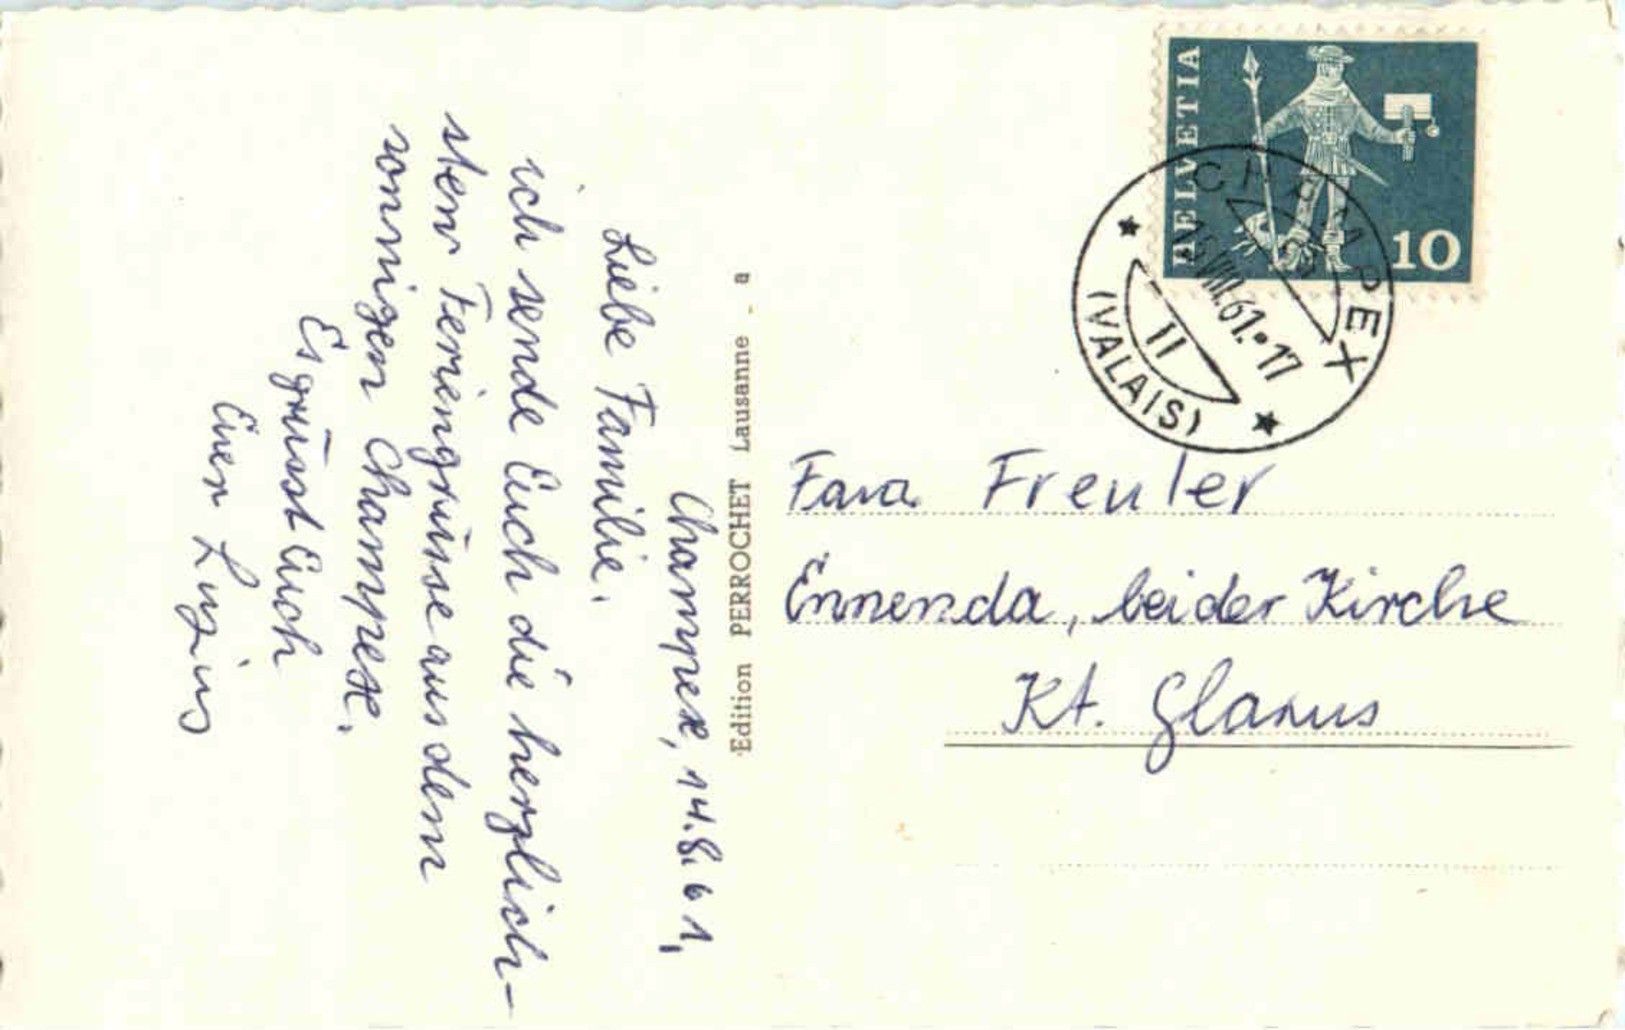 Champex, 14.8.61,
Liebe Familie.
ich sende Euch die herzlich-
sten Feriengrüsse aus dem
sonnigen Champex.
Es grüsst Euch
Euer Luzius
Edition PERROCHET Lausanne - a
HELVETIA
10
CHAMPEX
15.VIII.61.•17
11
(VALAIS)
Fam. Freuler
Ennenda, bei der Kirche
Kt. Glarus